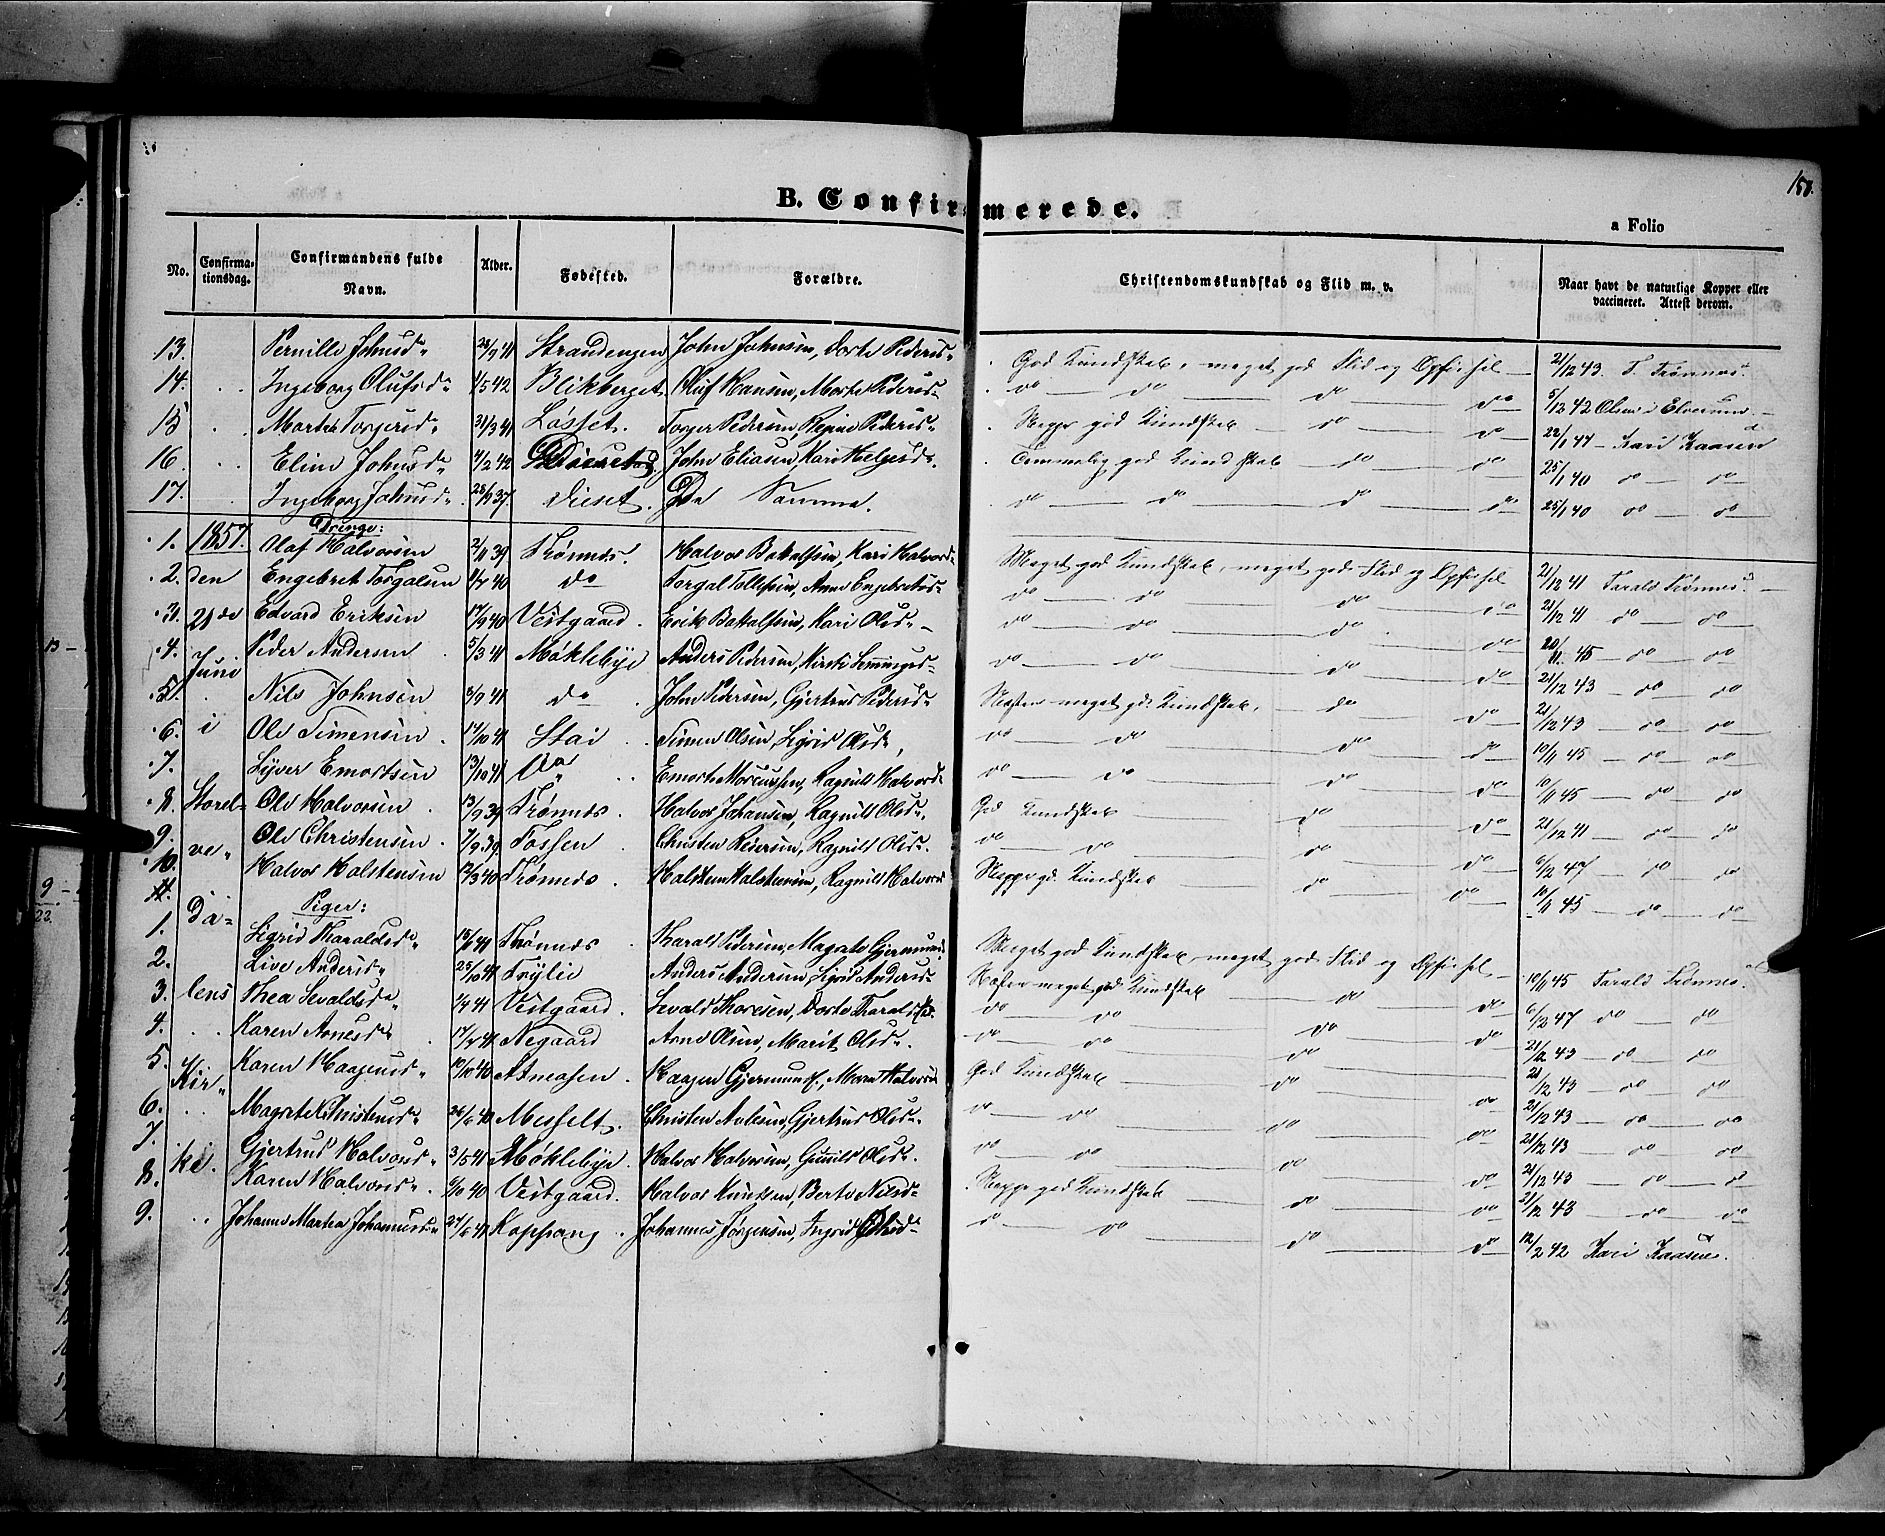 158.
B. Confirmerede.
a Folio
No. Confirmationsdag. Confirmandens fulde Navn. Alder. Fødested. Forældre. Christendomskundskab og Flid m. v. Naar havt de naturlige Kopper eller vaccineret. Attest derom.
13. Pernille Johnsd. 28/9 41 Strandengen John Johnsen, Dorte Peders. God Kundskab, meget god Flid og Opførsel 21/12 43. T. Trønnes.
14. Ingeborg Olufsd. 1/5 42 Blikberget Oluf Hansen, Marte Peders. do do do do 5/12 42 Olsen i Elverum
15. Marthe Torgersd. 31/3 41 Løsset. Torger Pedersen, Regine Peders. Neppe god Kundskab do do 22/1 44 Kari Kaasen
16. Eline Johnsd. 4/2 42 John Eliasen, Kari Helgesd. Temmelig god Kundskab do do 25/1 40 do do
17. Ingeborg Johnsd. 28/9 37. Dieset. De Samme. do do do do 25/1 40 do do
1857. den 21de Juni i Storelvedalens Kirke.
Drenge:
1. Olaf Halvorsen 2/11 39 Trønnes. Halvor Bottolfsen, Kari Halvord. Meget god Kundskab, meget god Flid og Opførsel 21/12 41 Tarald Trønnes.
2. Engebret Torgalsen 8/4 40 do Torgal Tollefsen, Anne Engebretsd. do do do do 21/12 41 do do
3. Edvard Eriksen 17/9 40 Vestgaard. Erik Bottolfsen, Kari Olsd. do do do do 20/11 45 do do
4. Peder Andersen 5/3 41 Møklebye Anders Pedersen, Kirsti Semmingsd. do do do do 21/12 43 do do
5. Nils Johnsen 3/9 41 do John Pedersen, Gjertrud Pedersd. Næsten meget gd. Kundskab, do do 21/12 43 do do
6. Ole Simensen 14/10 41 Stai Simen Olsen, Sigrid Olsd. do do do do 10/11 45 do do
7. Syver Emortsen 13/10 41 Aa Emort Marcussen, Ragnild Halvord. do do do do 10/11 45 do do
8. Ole Halvorsen 13/9 39 Trønnes. Halvor Johansen, Ragnild Olsd. God Kundskab do do 21/12 41 do do
9. Ole Christensen 7/9 39. Fossen. Christen Pedersen, Ragnild Olsd. do do do do 6/12 47 do do
10. Halvor Halstensen 12/3 40 Trønnes. Halsten Halstensen, Ragnild Halvord Neppe gd. Kundskab do do 10/11 45 do do
Piger:
1. Sigrid Tharaldsd. 15/6 41 Trønnes Tharald Pedersen, Magrete Gjermunds. Meget god Kundskab, meget god Flid og Opførsel 10/11 45 Tarald Trønnes.
2. Live Andersd. 25/10 41 Trylie Anders Andersen, Sigrid Andersd. Næsten meget god Kundskab do do 6/12 47 do do
3. Thea Sevaldsd. 1/9 41 Vestgaard. Sevald Thoresen, Dorte Tharaldsd. do do do do 21/12 43 do do
4. Karen Arnesd. 17/4 41 Negaard Arne Olsen, Marit Olsd. do do do do 21/12 43 do do
5. Karen Haagensd. 10/10 40 Atneosen. Haagen Gjermunds., Maren Halvorsd God Kundskab do do 21/12 43 do do
6. Magrete Christensd. 26/6 42 Messelt. Christen Gjertrud Olsd. do do do do 21/12 43 do do
7. Gjertrud Halvorsd. 3/5 41 Møklebye. Halvor Halvorsen, Gunild Olsd. do do do do 21/12 43 do do
8. Karen Halvorsd. 6/10 40 Vestgaard. Halvor Knudsen, Berte Nilsd. Neppe god Kundskab do do 21/12 43 do do
9. Johanne Martea Johannesd. 27/6 41 Koppang. Johannes Jørgensen, Ingrid Olsd. do do do do 12/2 42 Kari Kaasen.